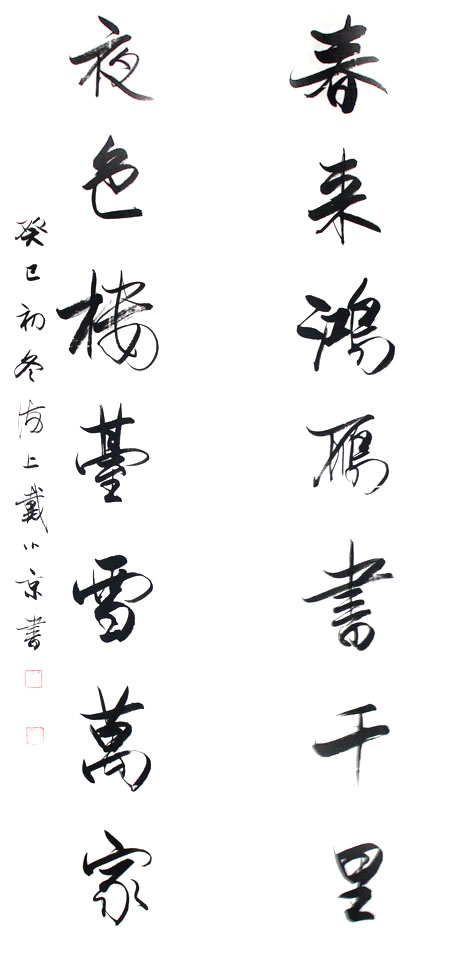 春来鴻雁書千里
夜色樓臺雪萬家
癸巳初冬海上戴小京書